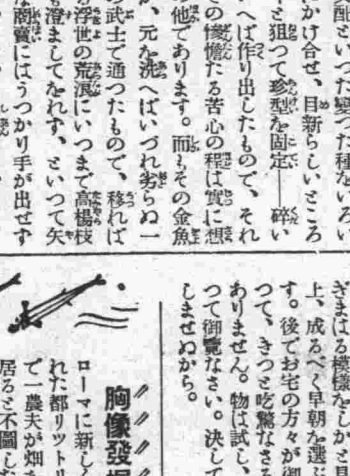 といつた變つた種をいろい
にかけ合せ、目新らしいところ
と狙つて珍型を固定――碎い
へば作り出したもので、それ
その慘憺たる苦心の程は實に想
の他であります。而もその金魚
が、元を洗へばいづれ劣らぬ一
の武士で通つたもので、移れば
る浮世の荒浪にいつまで高楊枝
も澄ましてをれず、といつて矢
な商賣にはうつかり手が出せず
ぎまはる模樣をしかと見
上、成るべく早朝を選ぶ
す。後でお宅の方々が御
つて、きつと吃驚なさ
ありません。物は試し、
つて御覽なさい。決して
しませぬから。
胸像發掘
ローマに新しく
れた都リットリ
で一農夫が畑を
居ると不圖し